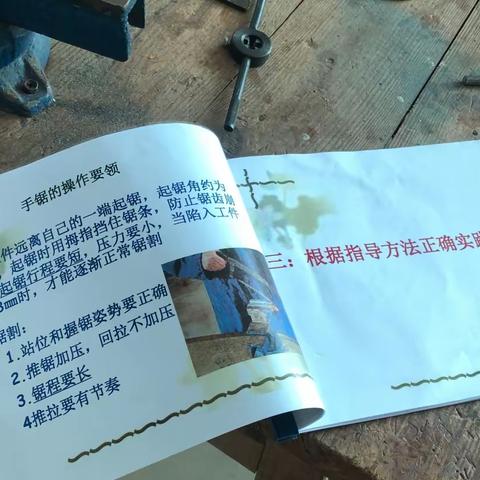 手锯的操作要领
件远离自己的一端起锯，起锯角约为
，起锯时用拇指挡住锯条，防止锯齿崩
起锯行程要短，压力要小，当陷入工件
3mm时，才能逐渐正常锯割
锯割：
1.站位和握锯姿势要正确
2.推锯加压，回拉不加压
3.锯程要长
4推拉要有节奏
三：根据指导方法正确实践